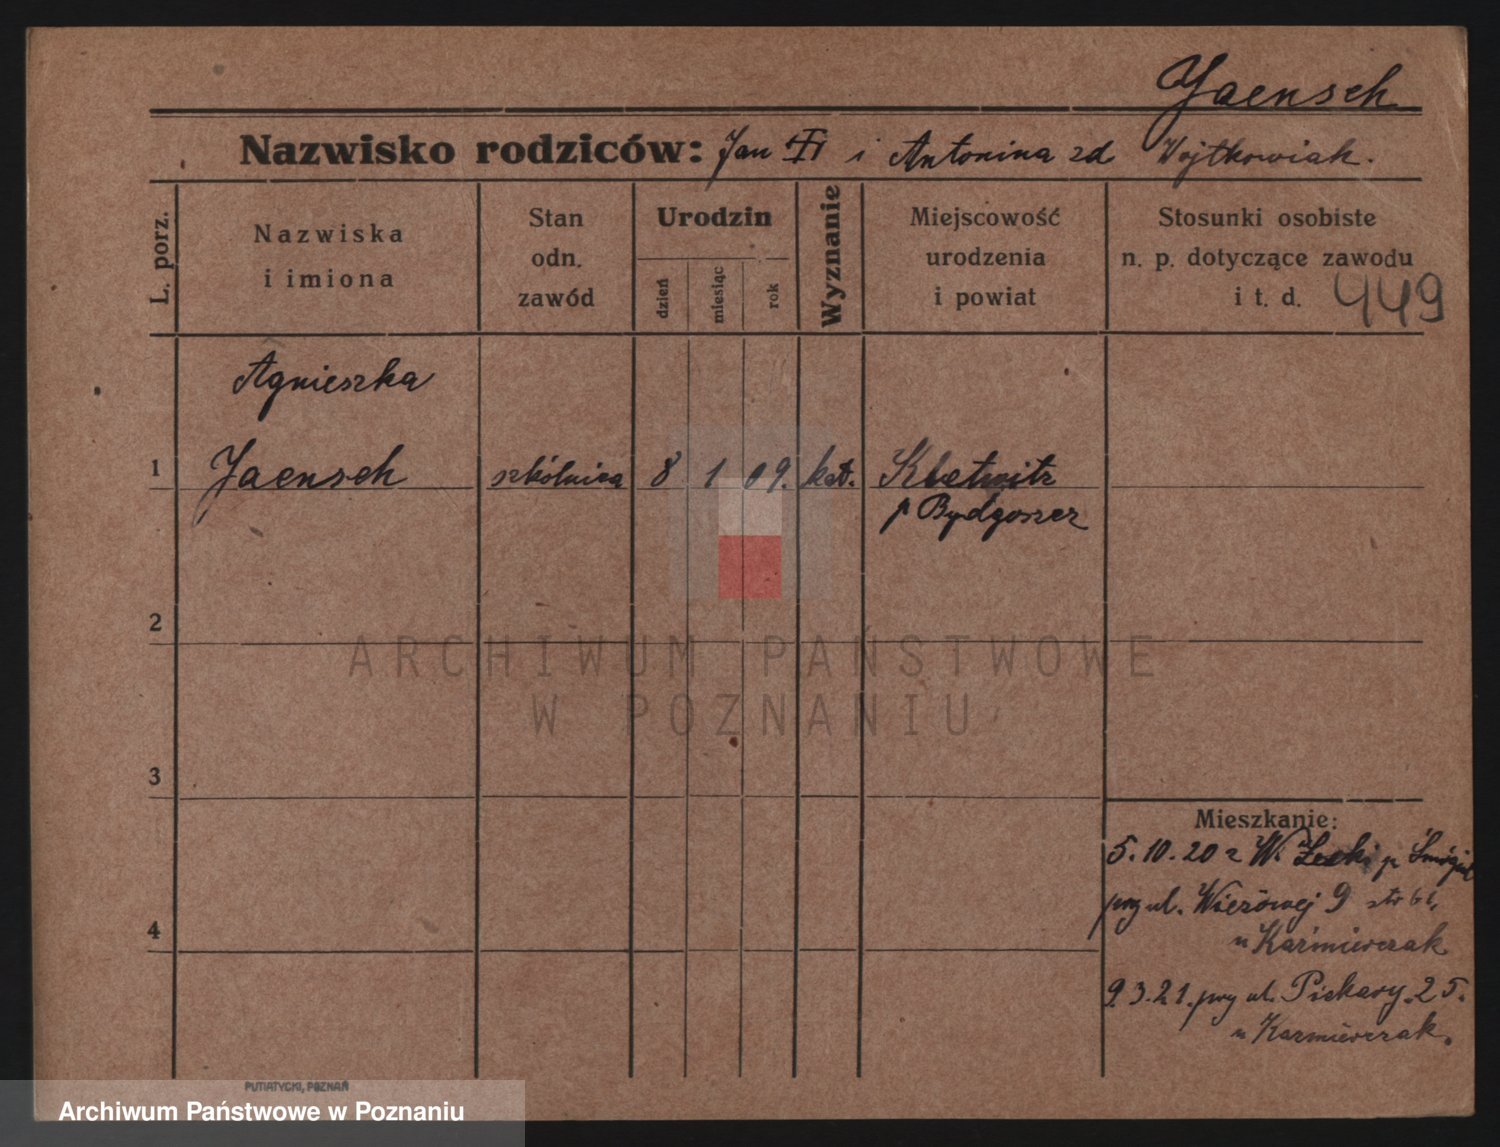 Jaensch
Nazwisko rodziców: Jan i Antonina zd Wojtkowiak.
L. porz.
Nazwiska
i imiona
Stan
odn.
zawód
Urodzin
dzień
miesiąc
rok
Wyznanie
Miejscowość
urodzenia
i powiat
Stosunki osobiste
n. p. dotyczące zawodu
i t. d. 449
Agnieszka
1 Jaensch szkólnica 8 1 09. kat.
p Bydgoszcz
2
3
4
Mieszkanie:
5.10.20 z W. p Śmigiel
przy ul. Wieżowej 9
u Kaźmierczak
9.3.21. przy ul. Piekary 25.
u Kazmierczak.
PUTIATYCKI, POZNAŃ
ARCHIWUM PAŃSTWOWE
W POZNANIU
Archiwum Państwowe w Poznaniu